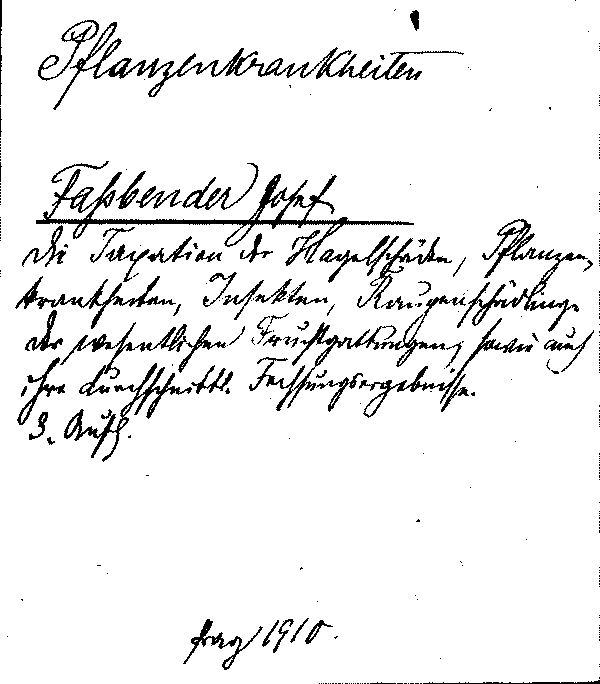 Pflanzenkrankheiten
Faßbender Josef
Die Taxation der Hagelschäden, Pflanzen-
krankheiten, Insekten, Raupenschädlinge
der wesentlichen Fruchtgattungen, sowie auch
ihre durchschnittl. Fechsungsergebnisse.
3. Aufl.
Prag 1910.